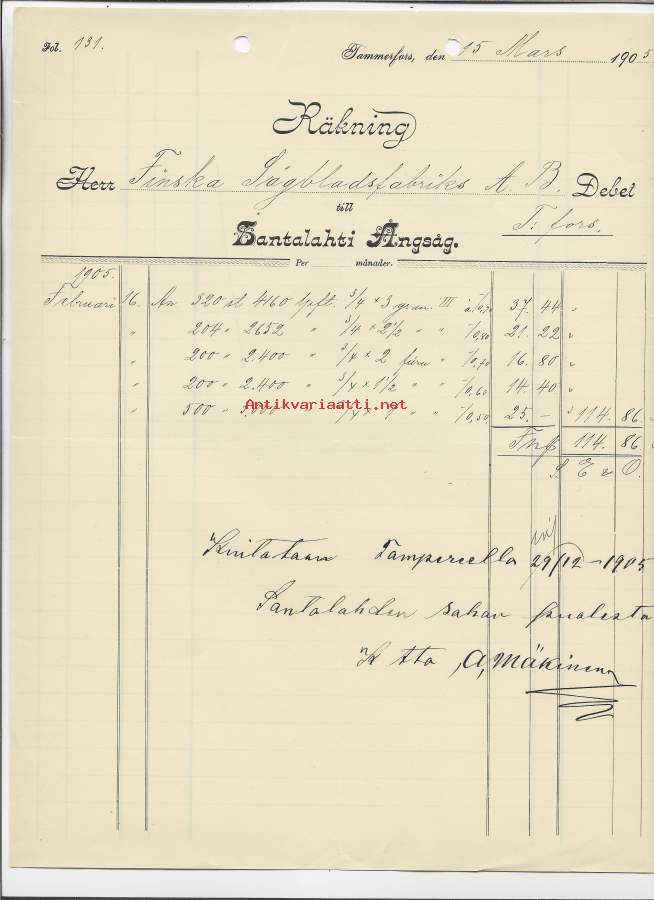 Fol. 131.
Tammerfors, den 15 Mars 1905
Räkning
Herr Finska Sågbladsfabriks A. B. Debet
till T: fors.
Santalahti Ångsåg.
Per månader.
1905.
Februari 16. An 320 st 4160 lpft. 3/4 × 3 gran III à -/0,90 37. 44 "
" 204 " 2652 " 3/4 × 2 1/2 " " -/0,80 21. 22 "
" 200 " 2.400 " 3/4 × 2 furu " -/0,70 16. 80 "
" 200 " 2.400 " 3/4 × 1 1/2 " " -/0,60 14. 40 "
" 500 " " × 1 " " -/0,50 25. – " 114. 86 "
Antikvariaatti.net
Fmk 114. 86 "
S. E & O.
Kuitataan Tampereella 29/12 – 1905
Santalahden sahan puolesta
A. Mäkinen